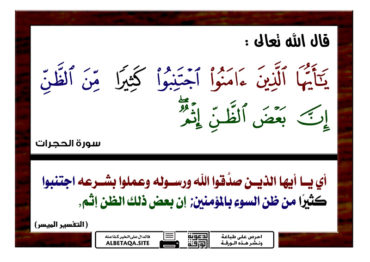 قال الله تعالى :
يَٰٓأَيُّهَا ٱلَّذِينَ ءَامَنُواْ ٱجۡتَنِبُواْ كَثِيرٗا مِّنَ ٱلظَّنِّ
إِنَّ بَعۡضَ ٱلظَّنِّ إِثۡمٞۖ
سورة الحجرات
أي يــا أيها الذيــن صدَّقوا الله ورســوله وعملوا بشــرعه اجتنبوا
كثيرًا من ظن السوء بالمؤمنين; إن بعض ذلك الظن إثم,
(التفسير الميسر)
ALBETAQA.SITE
احرص على طباعة
ونشر هذه الورقة